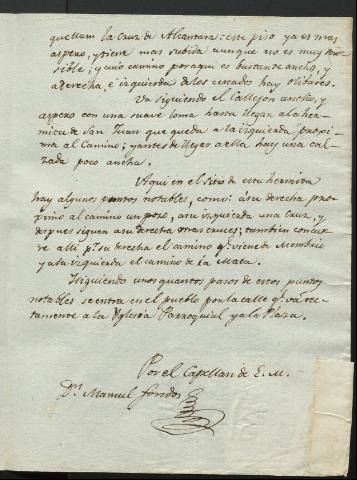 que llaman la Cruz de Alcantara: este piso ya es mas
aspero, y tiene mas subida aunque no es muy
sible; y cuio camino por aqui es bastante ancho, y
a derecha, è izquierda de los cercados hay olibares.
Va siguiendo el Callejon ancho, y
aspero con una suave loma hasta llegar a la her=
mita de San Juan que queda a la izquierda proxi=
ma al Camino; y antes de llegar a ella hay una cal=
zada poco ancha.
Aqui en el Sitio de esta hermita
hay algunos puntos notables, como: á su derecha pro=
ximo al camino un pozo, a su izquierda una Cruz, y
despues siguen a su derecha otras cruces; tambien concur=
re alli p.r su derecha el camino q.e viene de Membrio
y a su izquierda el camino de la Mata.
Y siguiendo unos quantos pasos de estos puntos
notables se entra en el pueblo por la calle q.e va rec=
tamente a la Yglesia Parroquial y a la Plaza.
Por el Capellan de E. M.
D.n Manuel